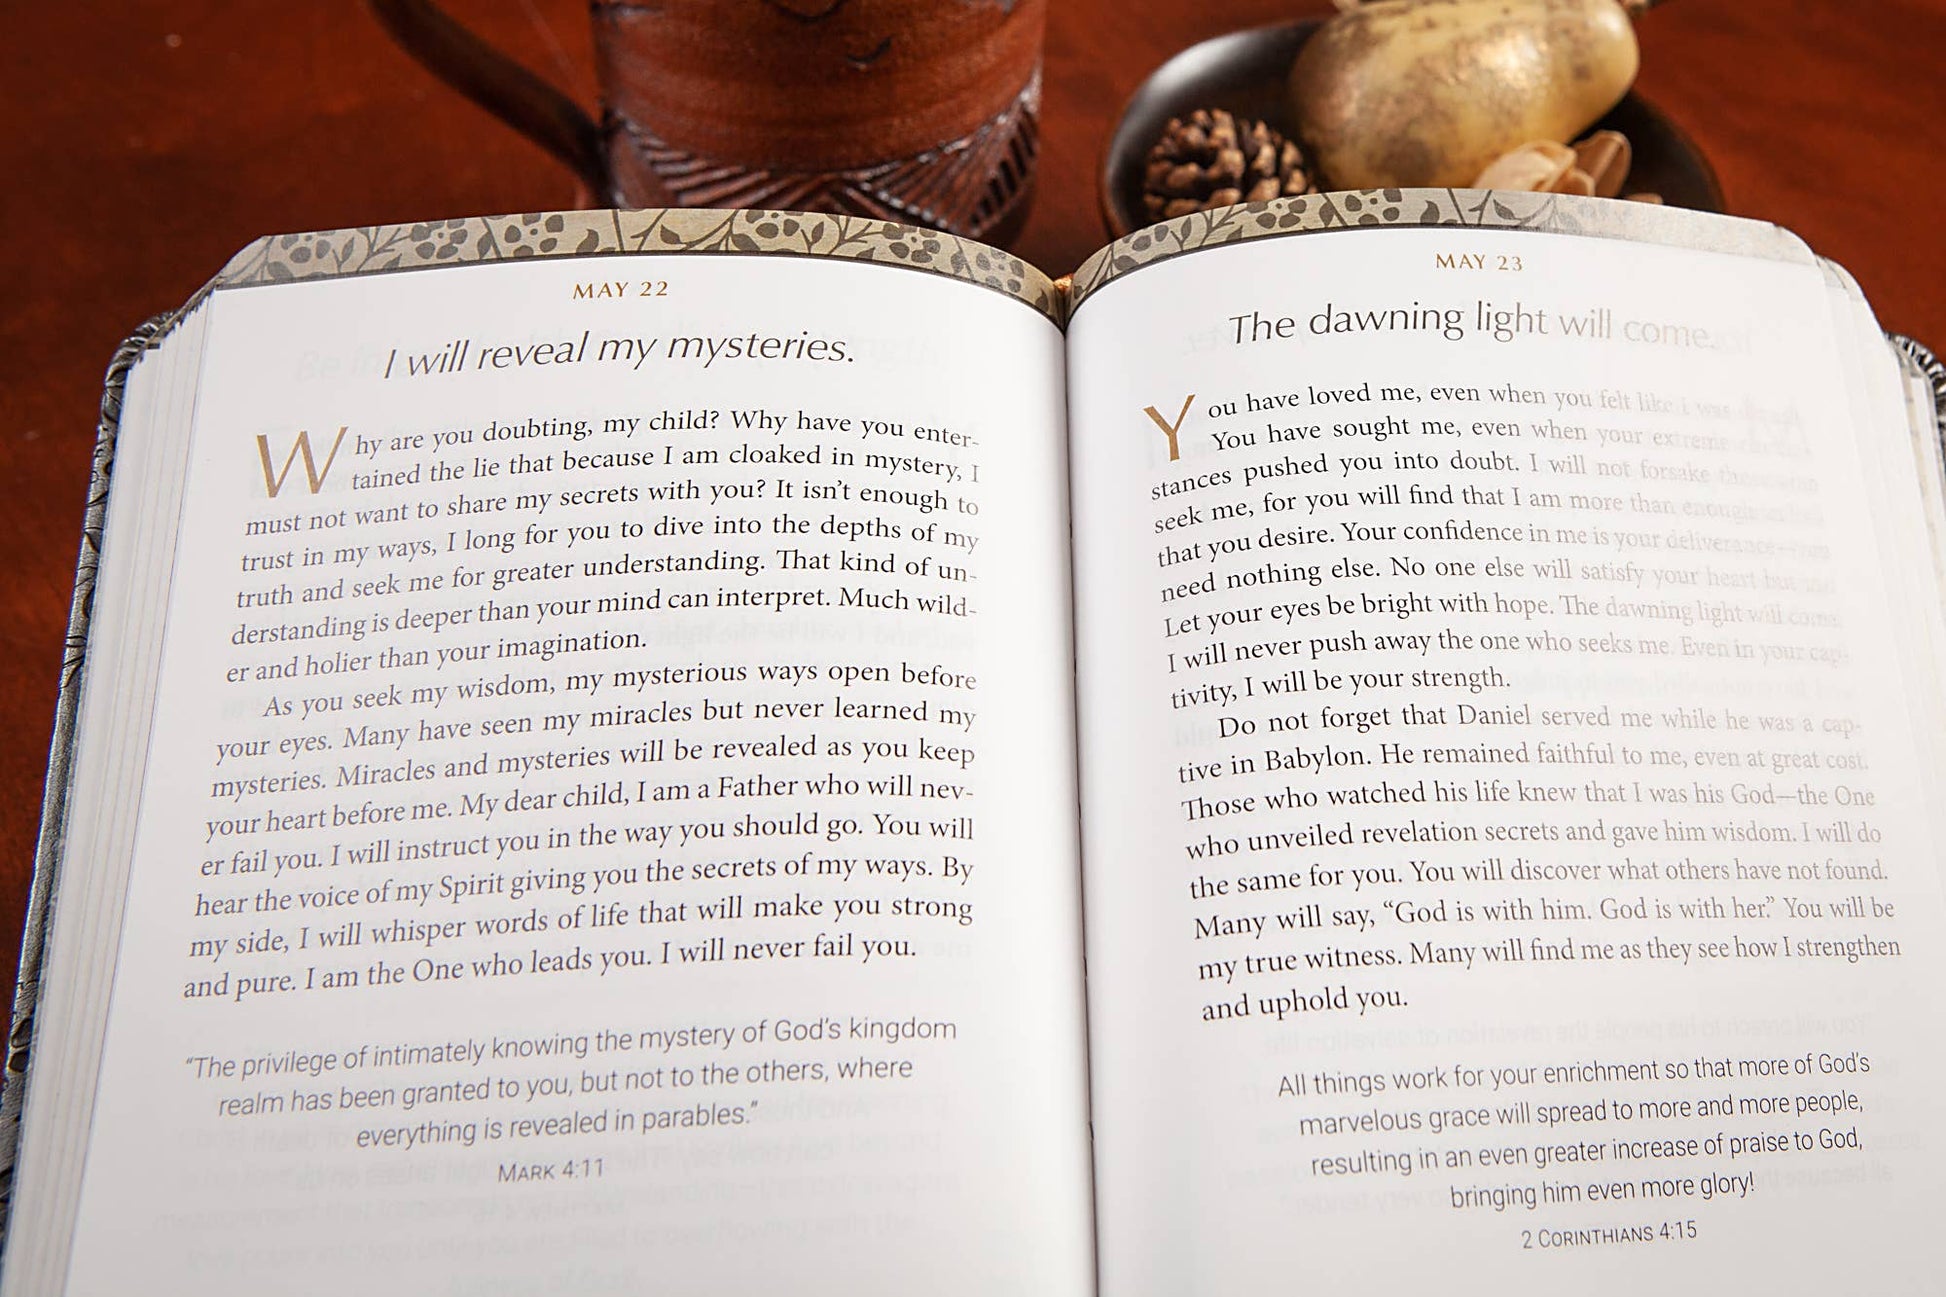 MAY 22
I will reveal my mysteries.
Why are you doubting, my child? Why have you enter-
tained the lie that because I am cloaked in mystery, I
must not want to share my secrets with you? It isn't enough to
trust in my ways, I long for you to dive into the depths of my
truth and seek me for greater understanding. That kind of un-
derstanding is deeper than your mind can interpret. Much wild-
er and holier than your imagination.
As you seek my wisdom, my mysterious ways open before
your eyes. Many have seen my miracles but never learned my
mysteries. Miracles and mysteries will be revealed as you keep
your heart before me. My dear child, I am a Father who will nev-
er fail you. I will instruct you in the way you should go. You will
hear the voice of my Spirit giving you the secrets of my ways. By
my side, I will whisper words of life that will make you strong
and pure. I am the One who leads you. I will never fail you.
“The privilege of intimately knowing the mystery of God's kingdom
realm has been granted to you, but not to the others, where
everything is revealed in parables.”
MARK 4:11
MAY 23
The dawning light will come.
You have loved me, even when you felt like I was
You have sought me, even when your extreme
stances pushed you into doubt. I will not forsake those who
seek me, for you will find that I am more than enough
that you desire. Your confidence in me is your deliverance—you
need nothing else. No one else will satisfy your heart but me.
Let your eyes be bright with hope. The dawning light will come.
I will never push away the one who seeks me. Even in your cap-
tivity, I will be your strength.
Do not forget that Daniel served me while he was a cap-
tive in Babylon. He remained faithful to me, even at great cost.
Those who watched his life knew that I was his God—the One
who unveiled revelation secrets and gave him wisdom. I will do
the same for you. You will discover what others have not found.
Many will say, “God is with him. God is with her.” You will be
my true witness. Many will find me as they see how I strengthen
and uphold you.
All things work for your enrichment so that more of God's
marvelous grace will spread to more and more people,
resulting in an even greater increase of praise to God,
bringing him even more glory!
2 CORINTHIANS 4:15